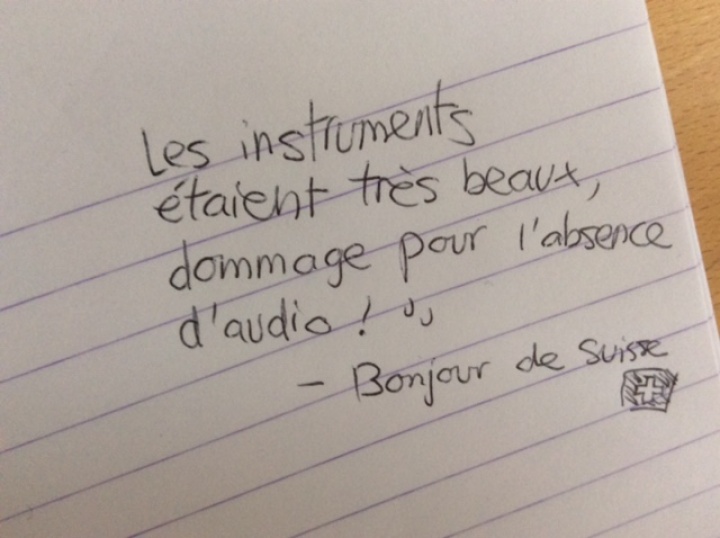 Les instruments
étaient très beaux,
dommage pour l'absence
d'audio !
- Bonjour de Suisse